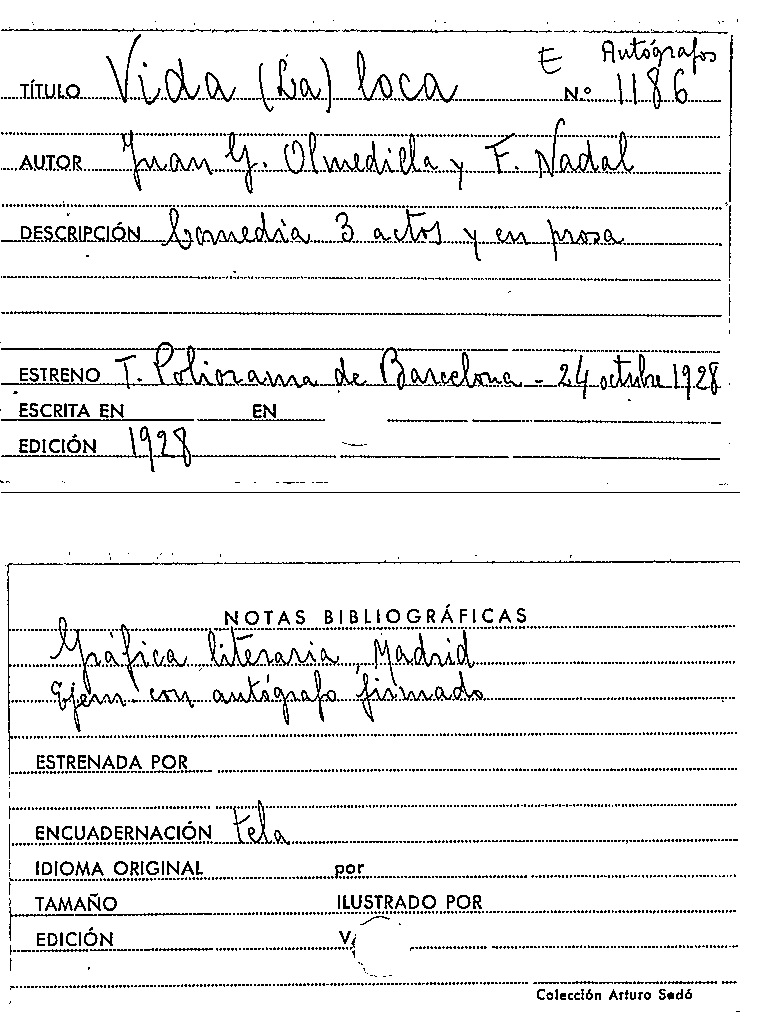 E Autógrafos
TÍTULO Vida (La) loca N.º 1186
AUTOR Juan G. Olmedilla y F. Nadal
DESCRIPCIÓN Comedia 3 actos y en prosa
ESTRENO T. Poliorama de Barcelona - 24 octubre 1928
ESCRITA EN EN
EDICIÓN 1928
NOTAS BIBLIOGRÁFICAS
Gráfica literaria, Madrid
Ejem. con autógrafo firmado
ESTRENADA POR
ENCUADERNACIÓN tela
IDIOMA ORIGINAL por
TAMAÑO ILUSTRADO POR
EDICIÓN V.
Colección Arturo Sedó